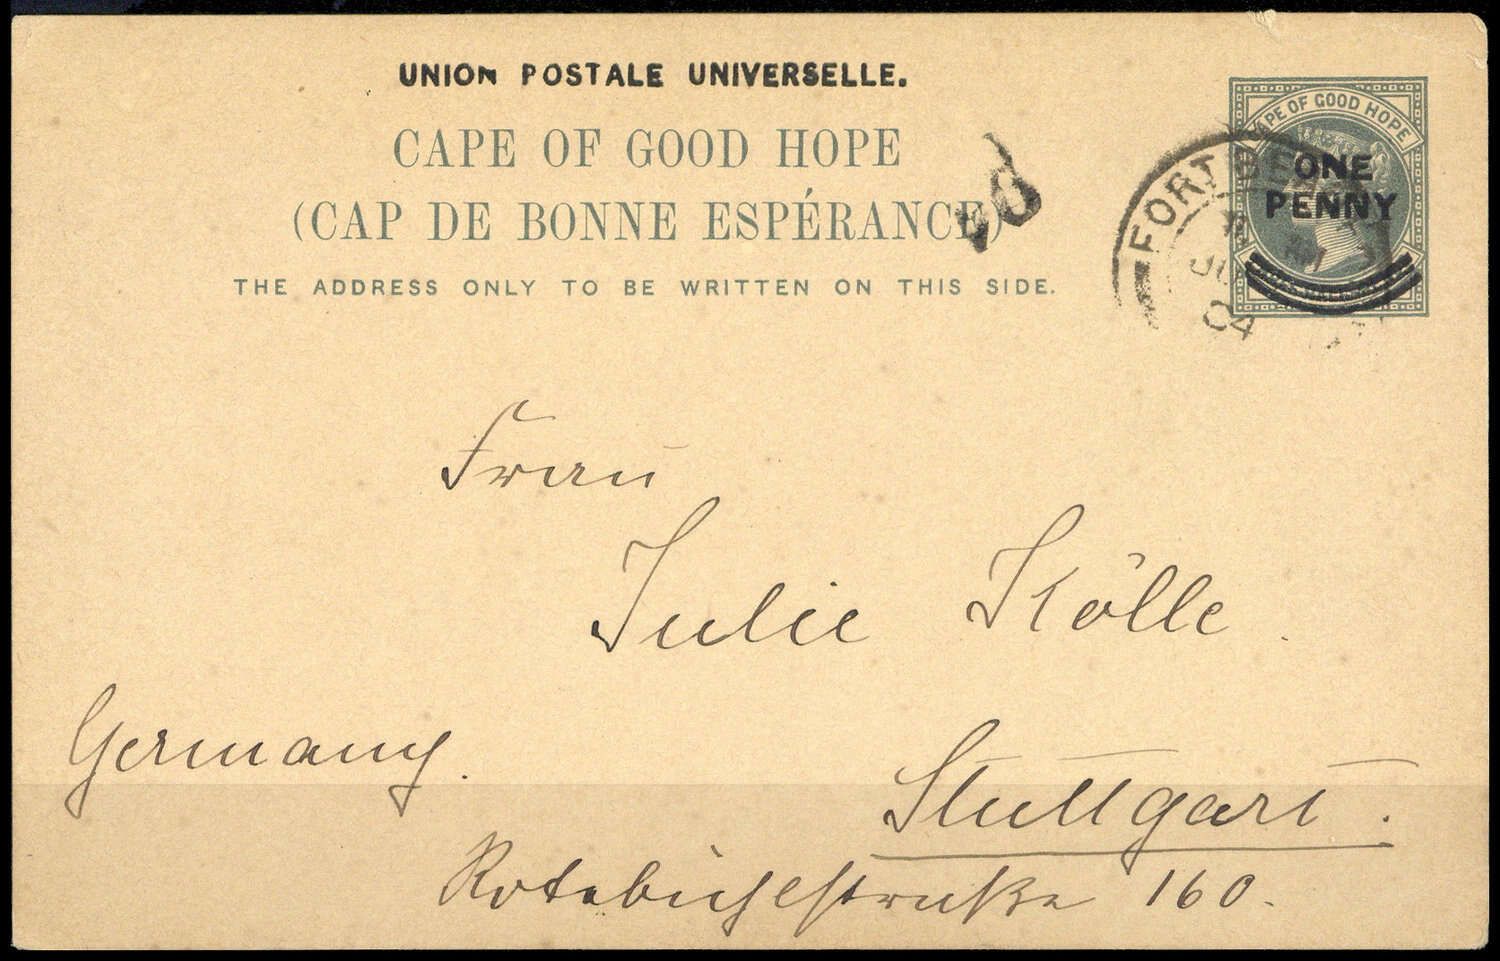 UNION POSTALE UNIVERSELLE.
CAPE OF GOOD HOPE
(CAP DE BONNE ESPÉRANCE)
THE ADDRESS ONLY TO BE WRITTEN ON THIS SIDE.
CAPE OF GOOD HOPE
ONE
PENNY
FORT
04
Frau
Julie Kölle
Germany.
Stuttgart.
Rotebühlstraße 160.